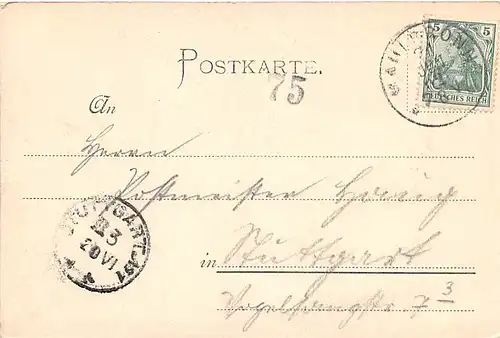 5 5
DEUTSCHES REICH
POSTKARTE.
75
An
Herrn
Postmeister
in Stuttgart
Vogelsangstr. 7 3
STUTTGART
3
20 VI